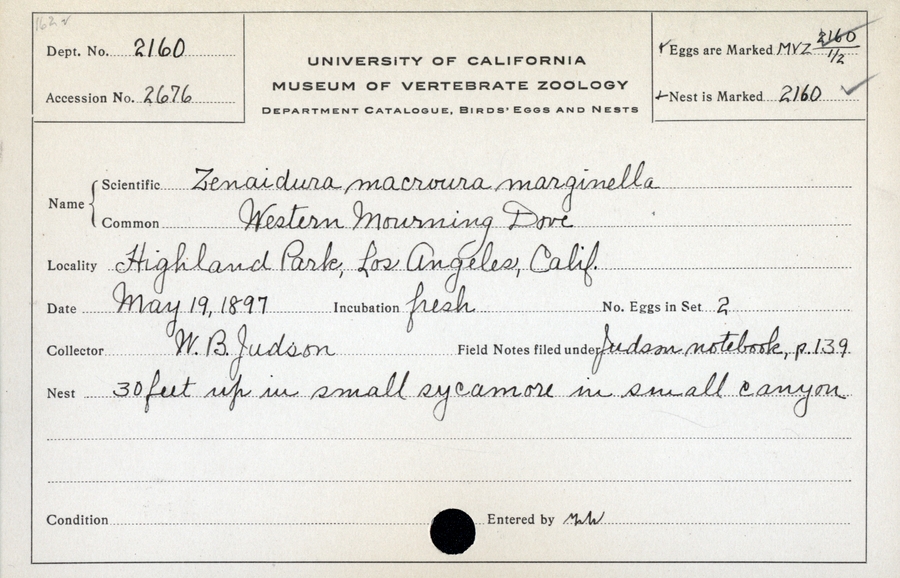 162
Dept. No. 2160
Accession No. 2676
UNIVERSITY OF CALIFORNIA
MUSEUM OF VERTEBRATE ZOOLOGY
DEPARTMENT CATALOGUE, BIRDS' EGGS AND NESTS
Eggs are Marked MVZ 2160
1/2
Nest is Marked 2160
Name
Scientific Zenaidura macroura marginella
Common Western Mourning Dove
Locality Highland Park, Los Angeles, Calif.
Date May 19, 1897 Incubation fresh No. Eggs in Set 2
Collector W. B. Judson Field Notes filed under Judson notebook, p. 139
Nest 30 feet up in small sycamore in small canyon
Condition Entered by